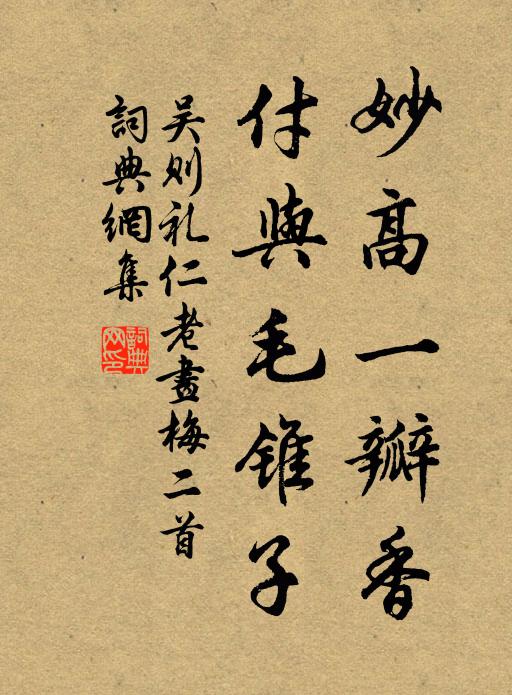 妙高一瓣香
付與毛錐子
吴则礼仁老畫梅二首
詞典網集
詞典網印